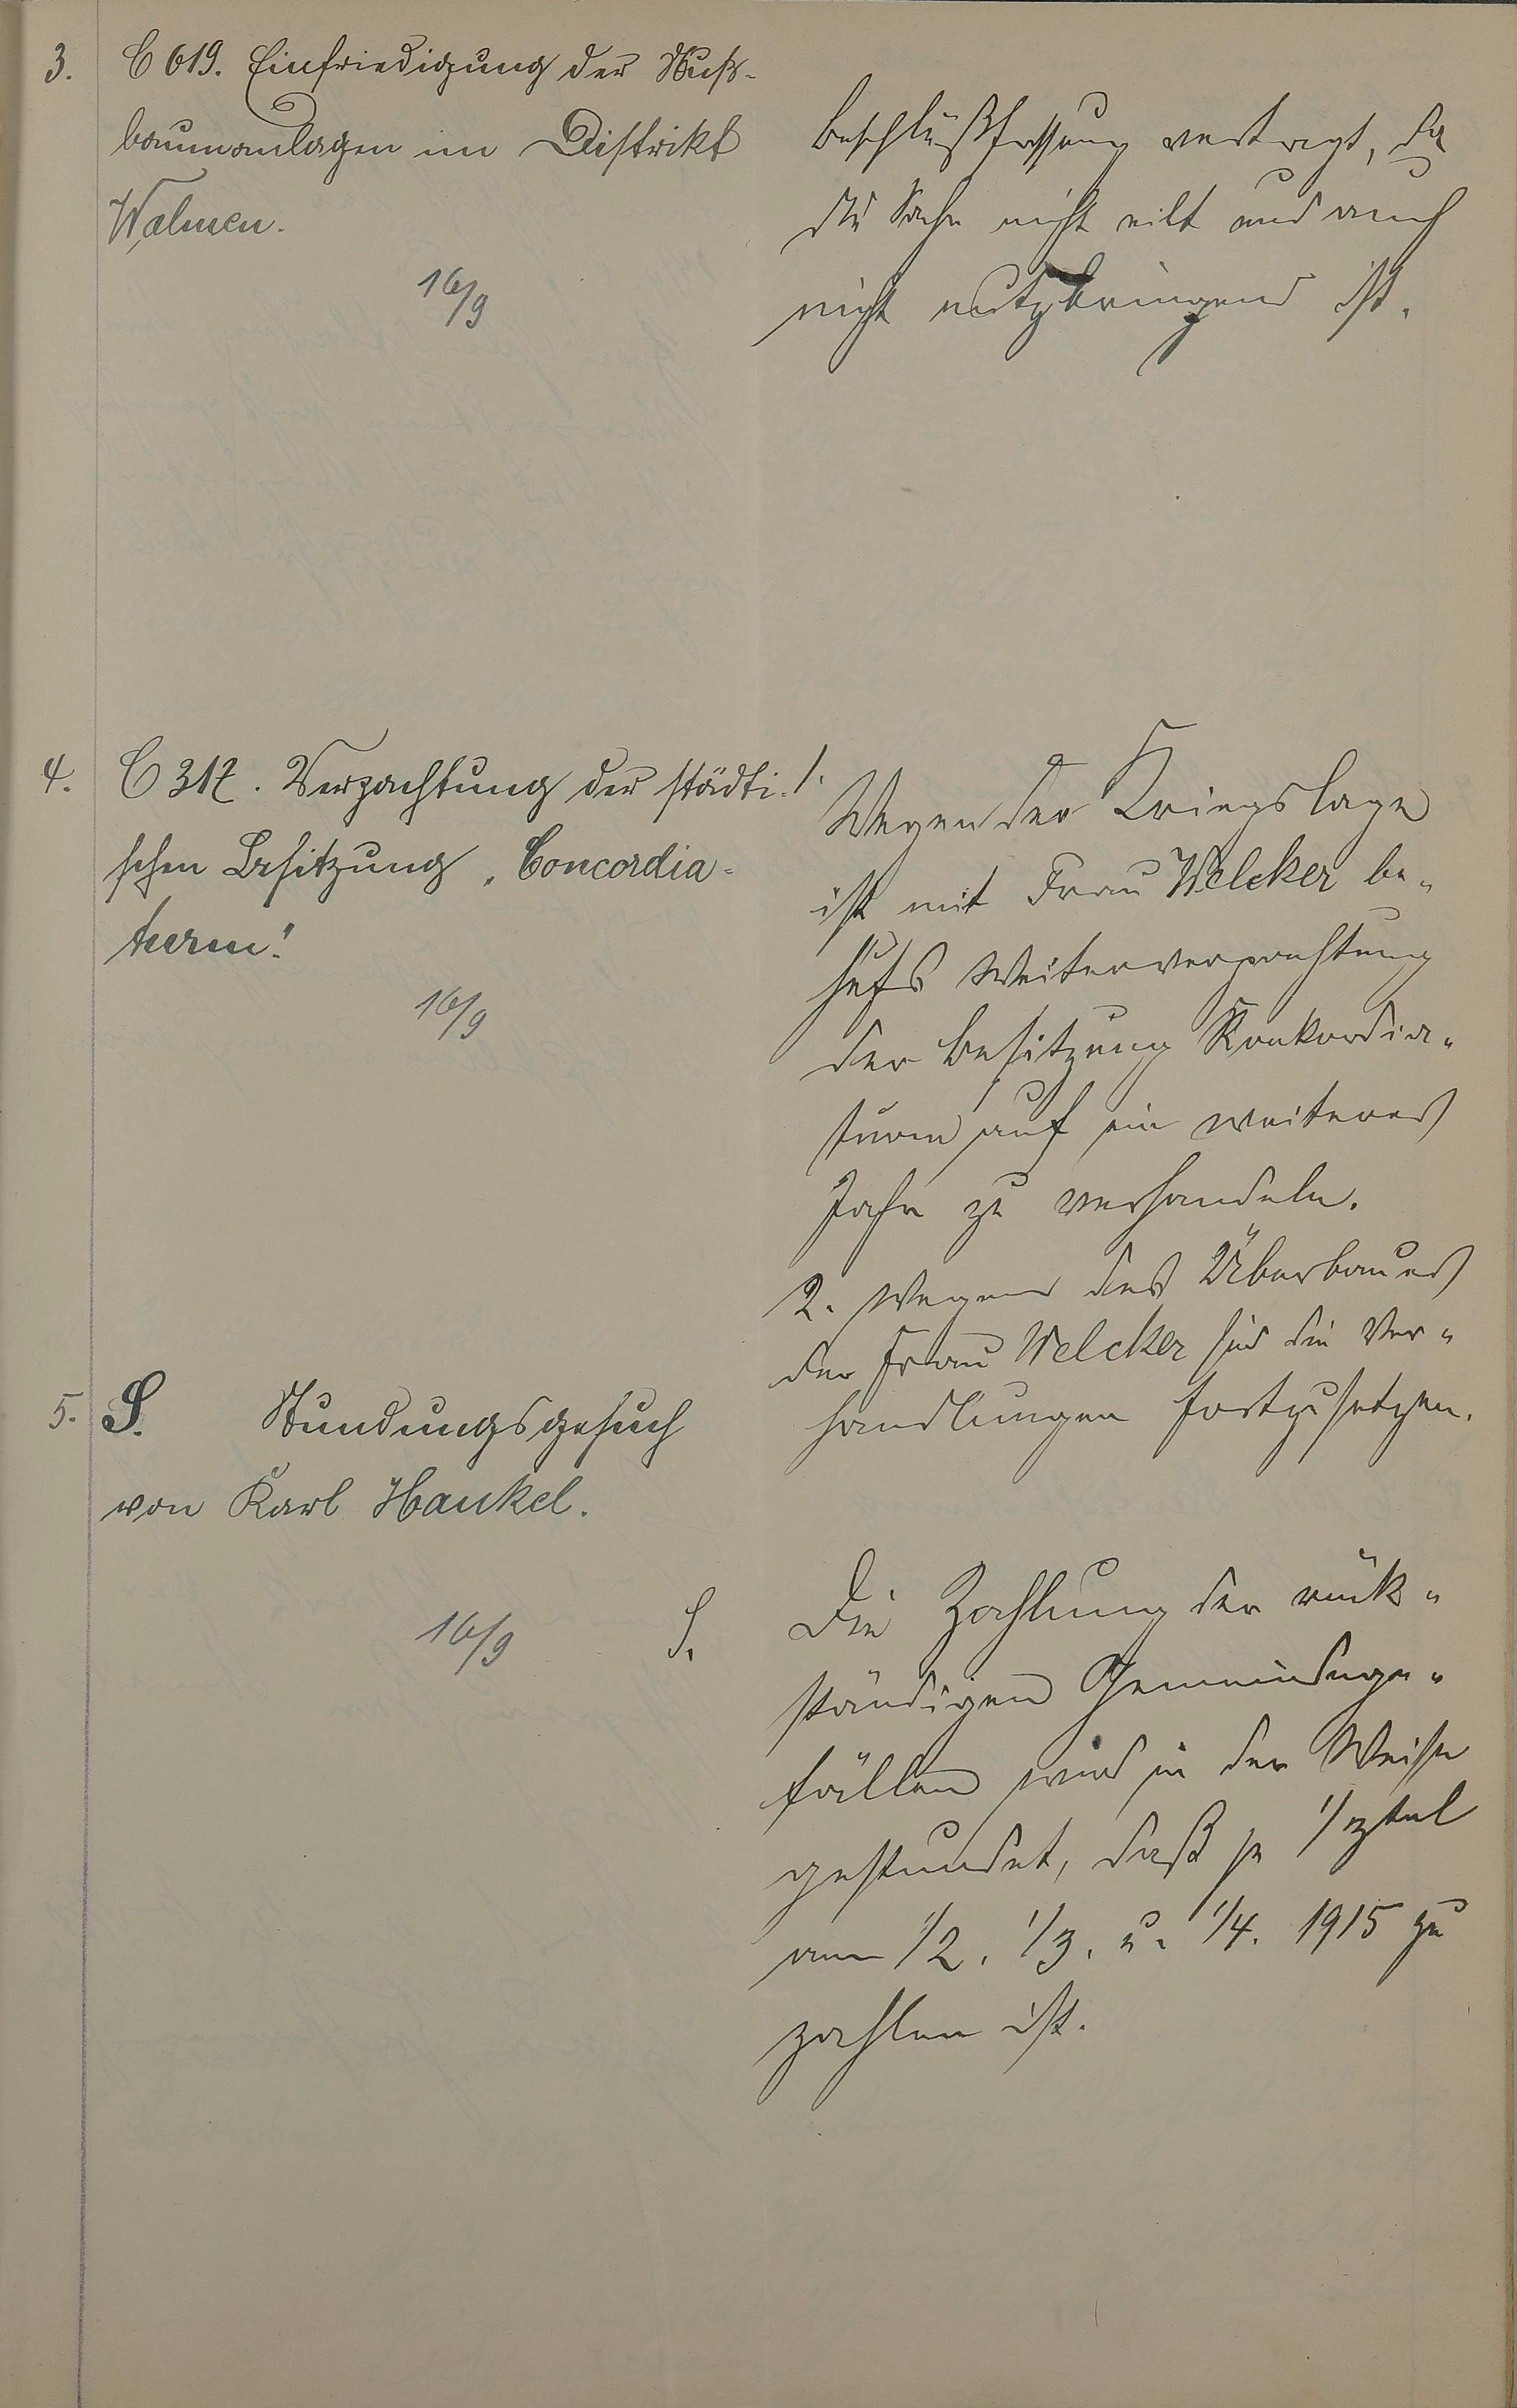 3. C 619. Einfriedigung der Nuß-
baumanlagen im Distrikt
Walmen.
16/9
Beschlußfassung vertagt, da
die Sache nicht eilt und auch
nicht nutzbringend ist.
4. C 317. Verpachtung der städti-
schen Besitzung „Concordia-
turm“.
16/9
1. Wegen der Kriegslage
ist mit Frau Welcker be-
hufs Weiterverpachtung
der Besitzung Konkordia-
turm auf ein weiteres
Jahr zu verhandeln.
2. Wegen des Überbaues
der Frau Welcker sind die Ver-
handlungen fortzusetzen.
5. S. Stundungsgesuch
von Karl Hankel.
16/9
S. Die Zahlung der rück-
ständigen Gemeindege-
fällen wird in der Weise
gestundet, daß je 1/3tel
am 1/2. 1/3. u. 1/4. 1915 zu
zahlen ist.